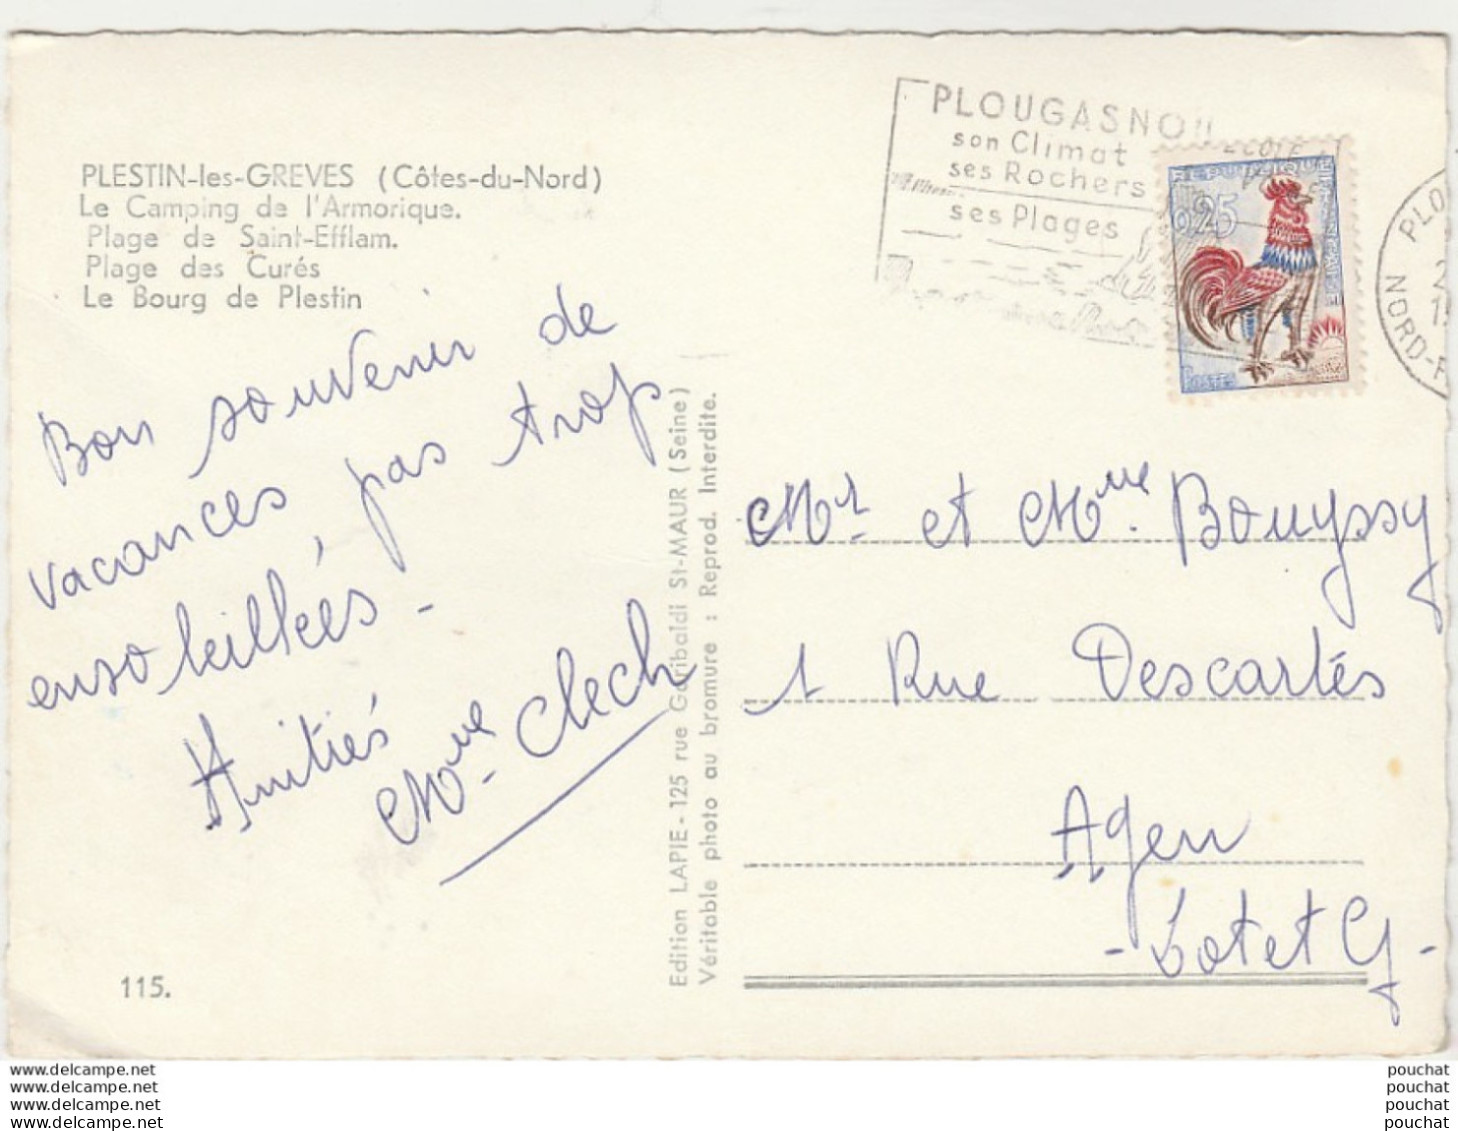 PLESTIN-les-GREVES (Côtes-du-Nord)
Le Camping de l'Armorique.
Plage de Saint-Efflam.
Plage des Curés
Le Bourg de Plestin
Bon souvenir de
vacances, pas trop
ensoleillées -
Amitiés
Mme Clech
115.
Edition LAPIE - 125 rue Garibaldi St-MAUR (Seine)
Véritable photo au bromure : Reprod. Interdite.
PLOUGASNOU
son Climat
ses Rochers
ses Plages
REPUBLIQUE FRANÇAISE
0,25
POSTES
PLO
NORD-F
Mr et Mme Bouyssy
1 Rue Descartes
Agen
- Lot et G -
www.delcampe.net
www.delcampe.net
www.delcampe.net
www.delcampe.net
pouchat
pouchat
pouchat
pouchat